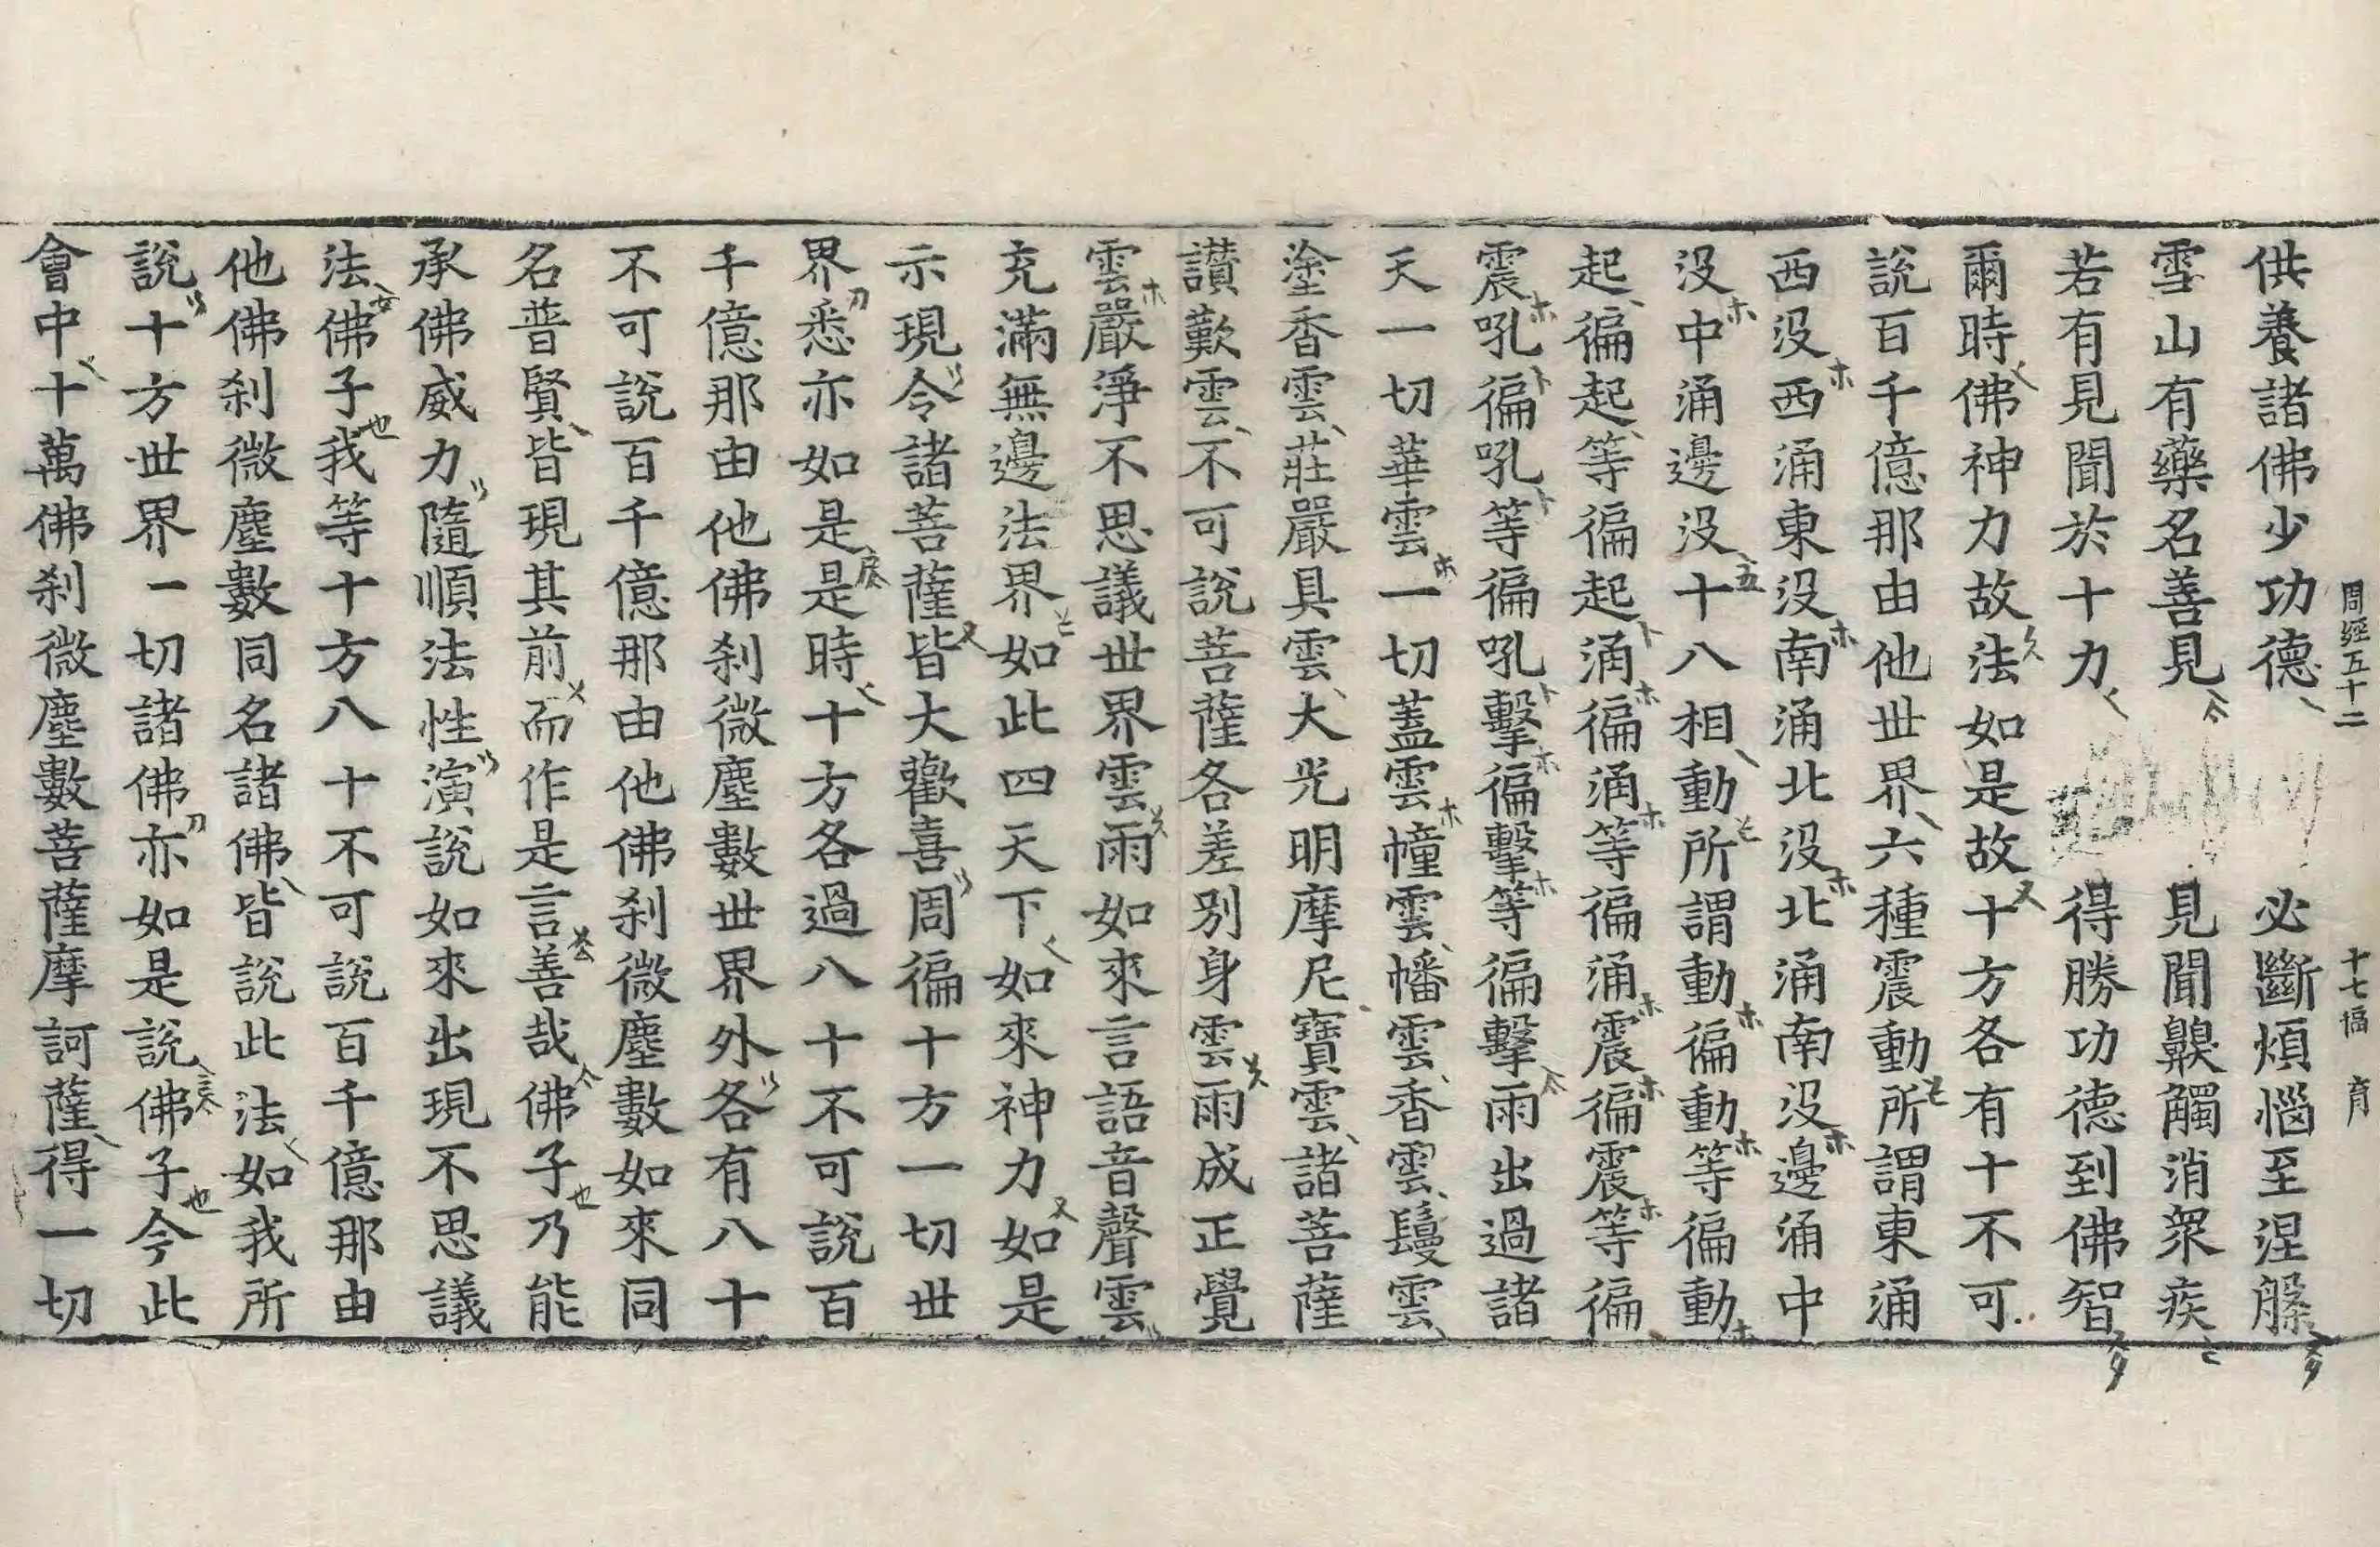 周經五十二 十七幅 育
供養諸佛少功德 必斷煩惱至涅槃
雪山有藥名善見 見聞齅觸消衆疾
若有見聞於十力 得勝功德到佛智
爾時佛神力故法如是故十方各有十不可
說百千億那由他世界六種震動所謂東涌
西沒西涌東沒南涌北沒北涌南沒邊涌中
沒中涌邊沒十八相動所謂動徧動等徧動
起徧起等徧起涌徧涌等徧涌震徧震等徧
震吼徧吼等徧吼擊徧擊等徧擊雨出過諸
天一切華雲一切蓋雲幢雲幡雲香雲鬘雲
塗香雲莊嚴具雲大光明摩尼寶雲諸菩薩
讃歎雲不可說菩薩各差別身雲雨成正覺
雲嚴淨不思議世界雲雨如來言語音聲雲
充滿無邊法界如此四天下如來神力如是
示現令諸菩薩皆大歡喜周徧十方一切世
界悉亦如是是時十方各過八十不可說百
千億那由他佛刹微塵數世界外各有八十
不可說百千億那由他佛刹微塵數如來同
名普賢皆現其前而作是言善哉佛子乃能
承佛威力隨順法性演說如來出現不思議
法佛子我等十方八十不可說百千億那由
他佛刹微塵數同名諸佛皆說此法如我所
說十方世界一切諸佛亦如是說佛子今此
會中十萬佛刹微塵數菩薩摩訶薩得一切